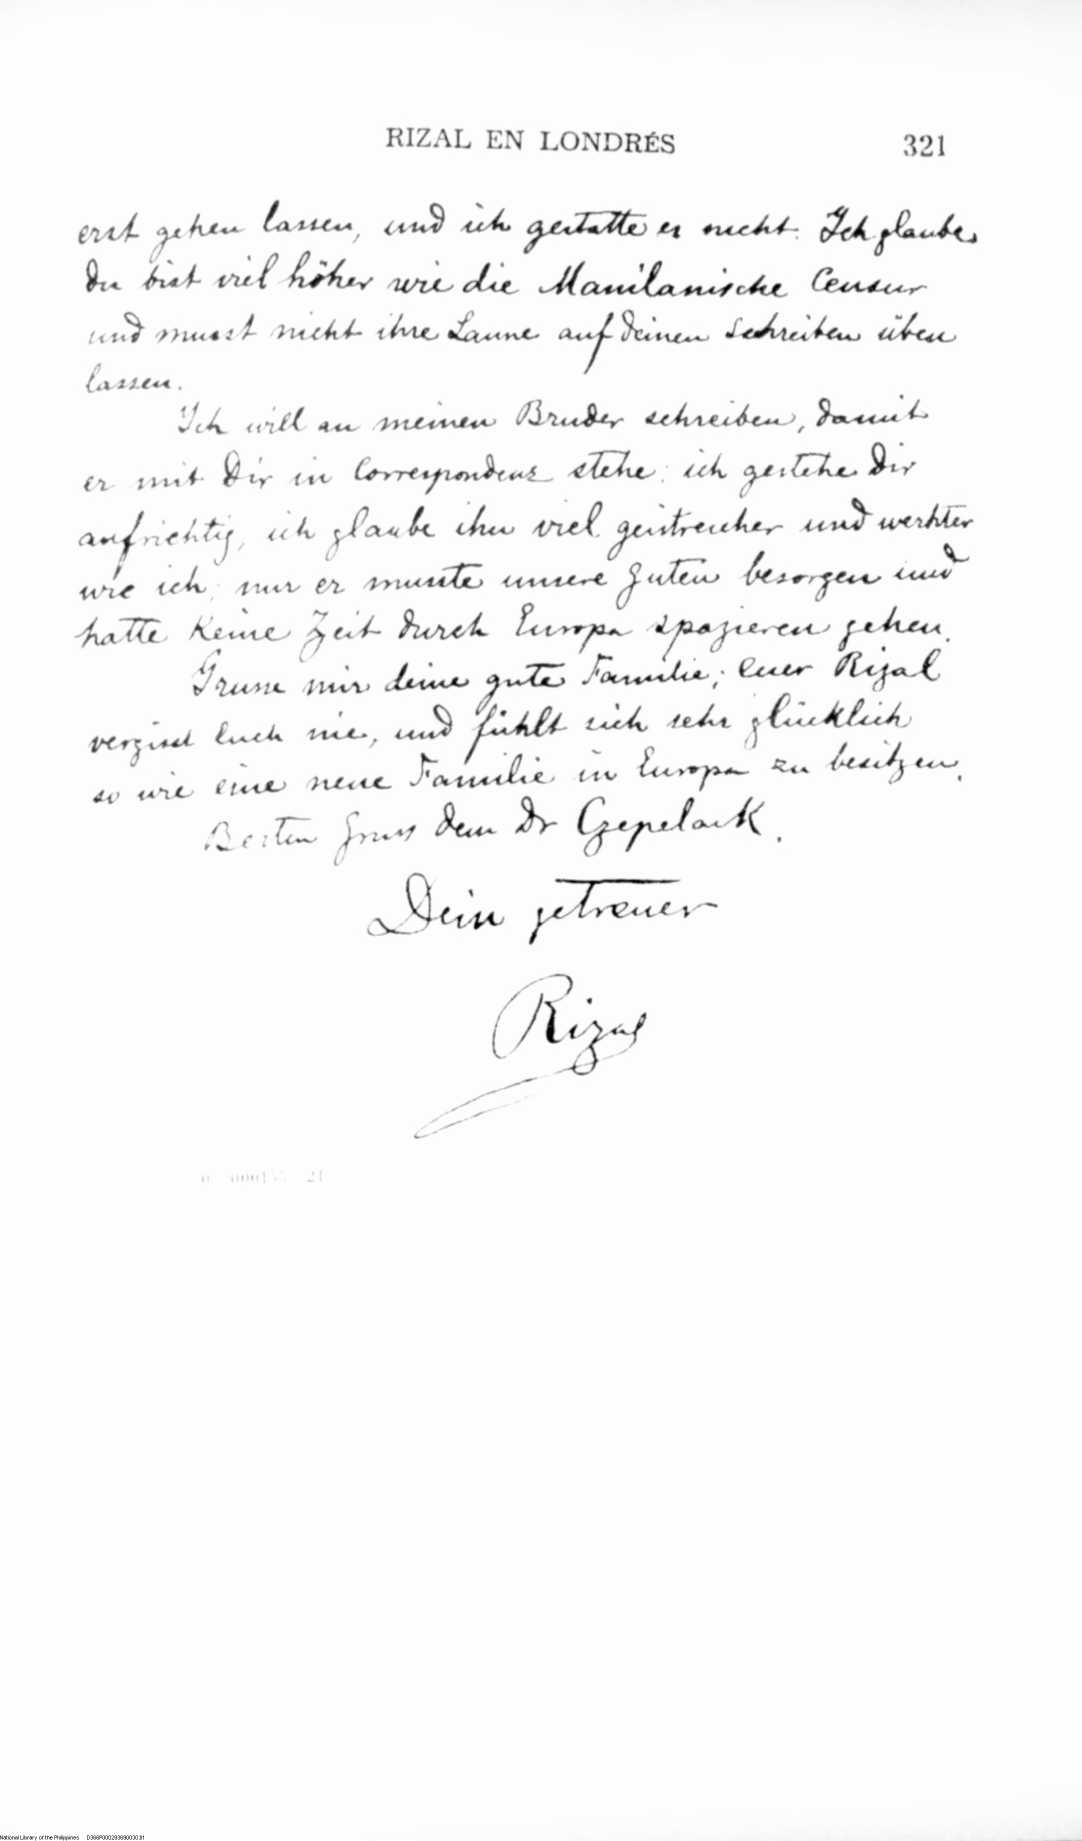 RIZAL EN LONDRÉS 321
erst gehen lassen, und ich gestatte es nicht. Ich glaube,
du bist viel höher wie die Manilanische Censur
und musst nicht ihre Laune auf deinen Schreiben üben
lassen.
Ich will an meinen Bruder schreiben, damit
er mit Dir in Correspondenz stehe: ich gestehe Dir
aufrichtig, ich glaube ihn viel geistreicher und werhter
wie ich; nur er musste unsere Guten besorgen und
hatte keine Zeit durch Europa spazieren gehen.
Grusse mir deine gute Familie; Euer Rizal
vergisst Euch nie, und fühlt sich sehr glücklich
so wie eine neue Familie in Europa zu besitzen.
Besten Gruss dem Dr Czepelack.
Dein getreuer
Rizal
21
National Library of the Philippines